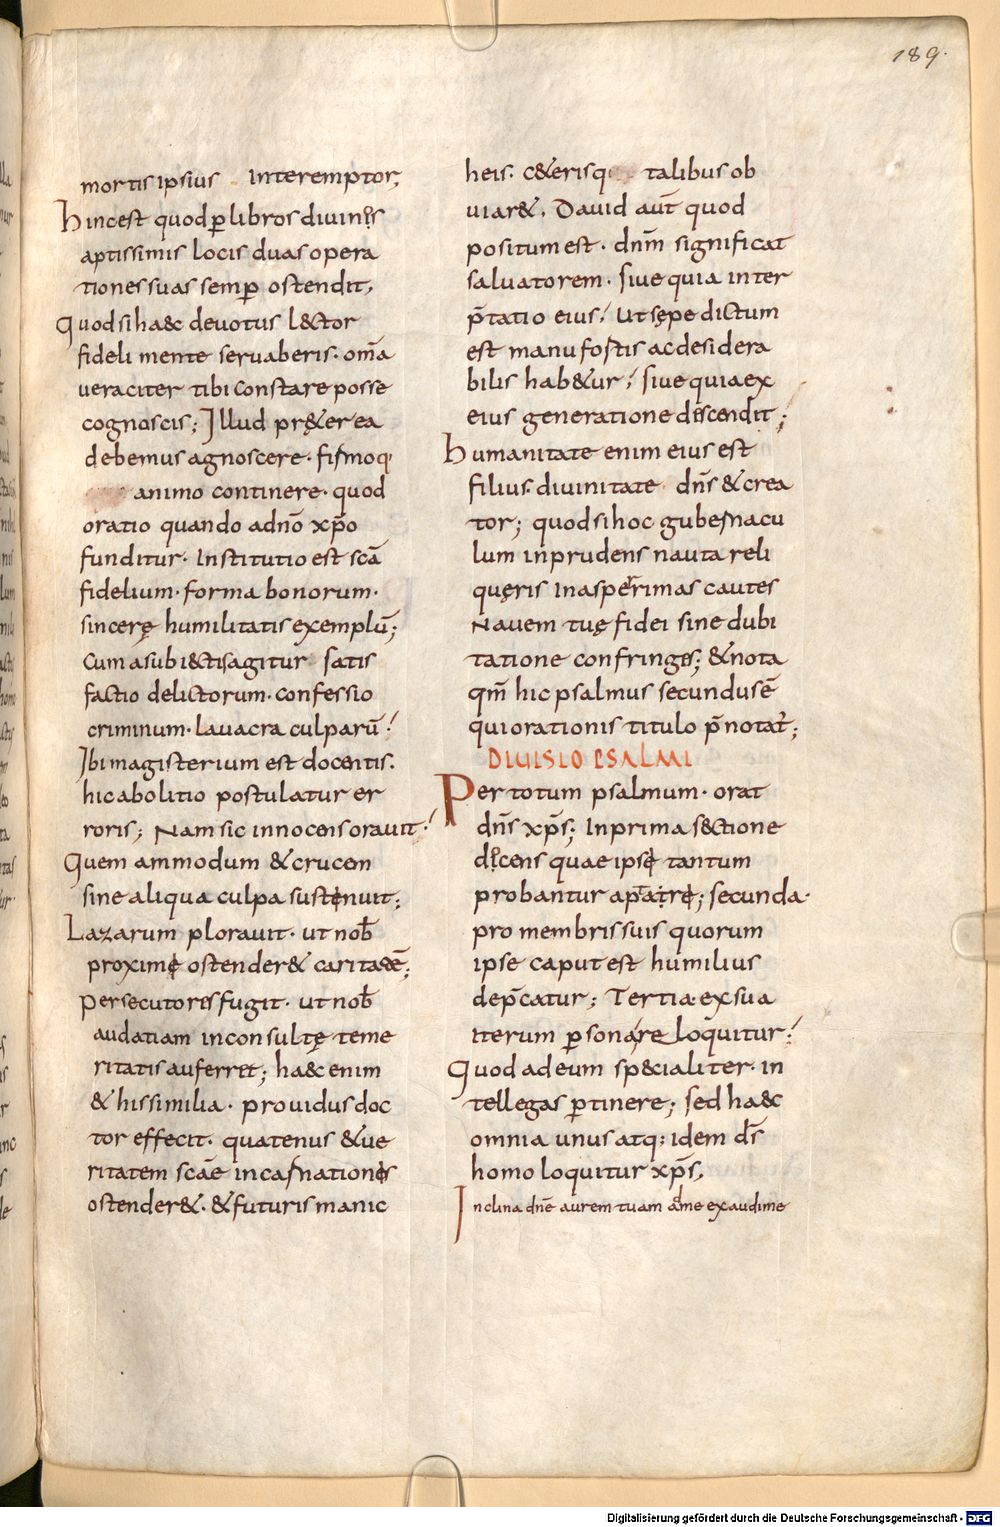 189.
mortis ipsius interemptor;
hinc est quod ꝑ libros diuinos
aptissimis locis duas opera
tiones suas semꝑ ostendit,
quod si ha&c deuotus l&ctor
fideli mente seruaberis. om̄a
ueraciter tibi constare posse
cognoscis; Illud pr&er ea
debemus agnoscere. firmoq;
animo continere. quod
oratio quando ad dnō xp̄o
funditur. Institutio est scā
fidelium. forma bonorum.
sincerę humilitatis exemplū;
Cum a subi&ctis agitur satis
factio delictorum. confessio
criminum. lauacra culparū!
Ibi magisterium est docentis.
hic abolitio postulatur er
roris; Nam sic innocens orauit!
Quem ammodum & crucem
sine aliqua culpa sustenuit;
Lazarum plorauit. ut nob̄
proxime ostender& caritatē;
persecutores fugit. ut nob̄
audatiam inconsultę teme
ritatis auferret; ha&c enim
& his similia. prouidus doc
tor effecit. quatenus & ue
ritatem scāe incarnationis
ostender&. & futuris manic
heis. c&erisq; talibus ob
uiar&. Dauid aūt quod
positum est. dnm̄ significat
saluatorem. siue quia inter
p̄tatio eius! ut sępe dictum
est manu fortis ac desidera
bilis hab&ur! siue quia ex
eius generatione discendit;
humanitate enim eius est
filius. diuinitate dn̄s & crea
tor; quod si hoc gubernacu
lum inprudens nauta reli
queris In asperrimas cautes
Nauem tuę fidei sine dubi
tatione confringes; & nota
qm̄ hic psalmus secundus ē
qui orationis titulo p̄notat̄;
DIUISIO PSALMI
Per totum psalmum. orat
dn̄s xp̄s; In prima s&ctione
dicens quae ipse tantum
probantur aptare; secunda.
pro membris suis quorum
ipse caput est humilius
dep̄catur; Tertia. ex sua
iterum ꝑsona re loquitur!
Quod ad eum sp&cialiter. in
tellegas ꝑtinere; sed ha&c
omnia unus atq; idem ds̄
homo loquitur xp̄s,
Inclina dn̄e aurem tuam ad me exaudi me
Digitalisierung gefördert durch die Deutsche Forschungsgemeinschaft - DFG